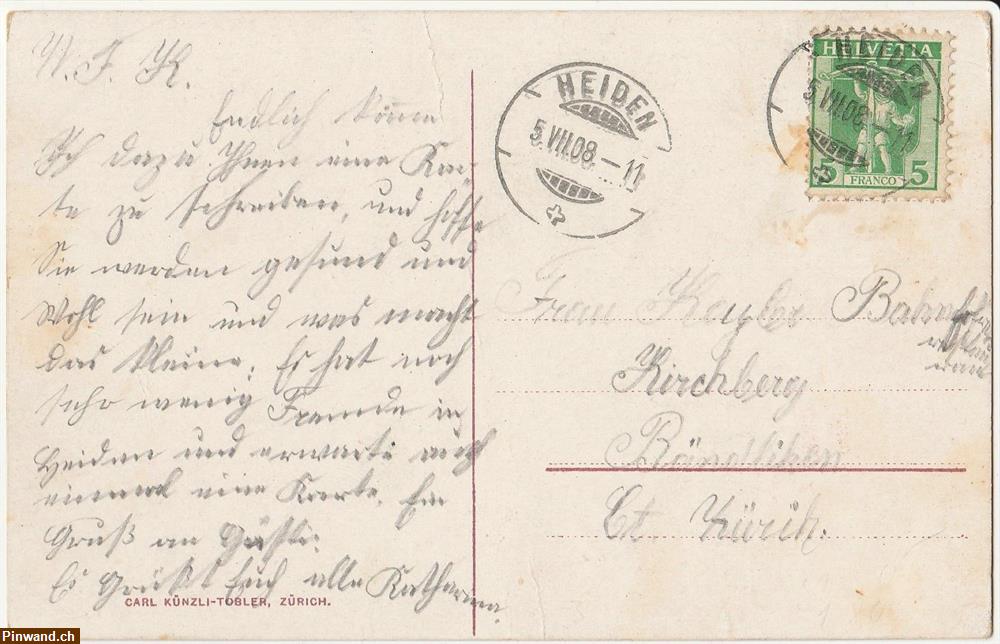 W. F. K.
Endlich könne
Ich dazu Ihnen eine Kar
te zu schreiben, und hoffe
Sie werden gesund und
Wohl sein und was macht
das kleine. Es hat noch
sehr wenig Fremde in
Heiden und erwarte auch
einmal eine Karte. Ein
Gruß an
Es Grüßt Euch alle Katharina
CARL KÜNZLI-TOBLER, ZÜRICH.
HEIDEN
5.VII.08.–11
HELVETIA
HEIDEN
5.VII.08.–11
5 FRANCO 5
Frau Kegler
Kirchberg
Bändliken
Ct. Zürich.
Pinwand.ch